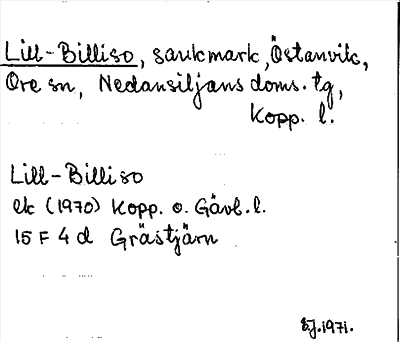 Lill-Billiso, sankmark, Östanvik,
Ore sn, Nedansiljans doms. tg,
Kopp. l.
Lill-Billiso
ek (1970) Kopp. o. Gävl. l.
15 F 4 d Grästjärn
EJ. 1971.